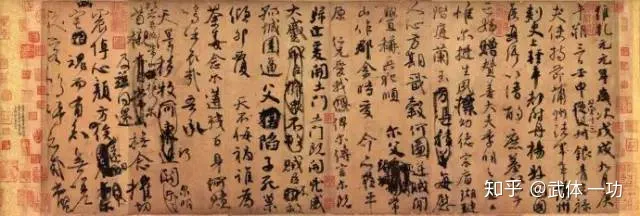 維乾元元年歲次戊戌九月庚
午朔三日壬申第十三叔銀青光祿
夫使持節蒲州諸軍事蒲州
刺史上輕車都尉丹楊縣開國
侯真卿以清酌庶羞祭于
亡姪贈贊善大夫季明之靈曰
惟爾挺生夙標幼德宗廟瑚璉
階庭蘭玉每慰
人心方期戩穀何圖逆賊閒
釁稱兵犯順爾父竭誠常
山作郡余時受命亦在平
原仁兄愛我俾爾傳言爾既
歸止爰開土門土門既開凶威
大蹙賊臣不救
孤城圍逼父陷子死巢
傾卵覆天不悔禍誰為
荼毒念爾遘殘百身何贖
嗚乎哀哉吾承
天澤移牧河關
首櫬及茲同還撫念摧切
震悼心顏方俟
魂而有知無嗟
知乎 @武体一功